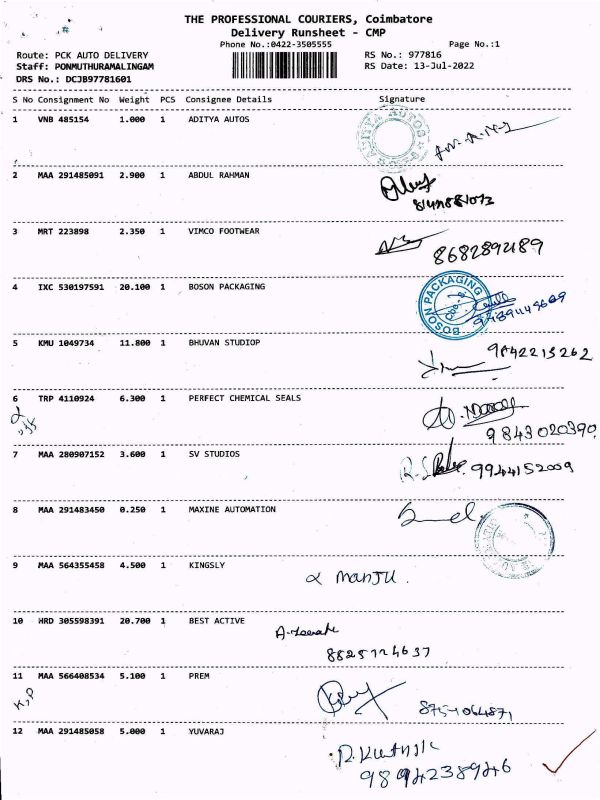 THE PROFESSIONAL COURIERS, Coimbatore
Delivery Runsheet - CMP
Phone No.:0422-3505555 Page No.:1
Route: PCK AUTO DELIVERY RS No.: 977816
Staff: PONMUTHURAMALINGAM RS Date: 13-Jul-2022
DRS No.: DCJB97781601
S No Consignment No Weight PCS Consignee Details Signature
1 VNB 485154 1.000 1 ADITYA AUTOS
ADITYA AUTOS
2 MAA 291485091 2.900 1 ABDUL RAHMAN
3 MRT 223898 2.350 1 VIMCO FOOTWEAR
4 IXC 530197591 20.100 1 BOSON PACKAGING
BOSON PACKAGING
5 KMU 1049734 11.800 1 BHUVAN STUDIOP
9842213262
6 TRP 4110924 6.300 1 PERFECT CHEMICAL SEALS
9843020390
7 MAA 280907152 3.600 1 SV STUDIOS
9944152009
8 MAA 291483450 0.250 1 MAXINE AUTOMATION
9 MAA 564355458 4.500 1 KINGSLY
MANJU.
10 HRD 305598391 20.700 1 BEST ACTIVE
8825724637
11 MAA 566408534 5.100 1 PREM
K,P
8754064871
12 MAA 291485058 5.000 1 YUVARAJ
9894238946